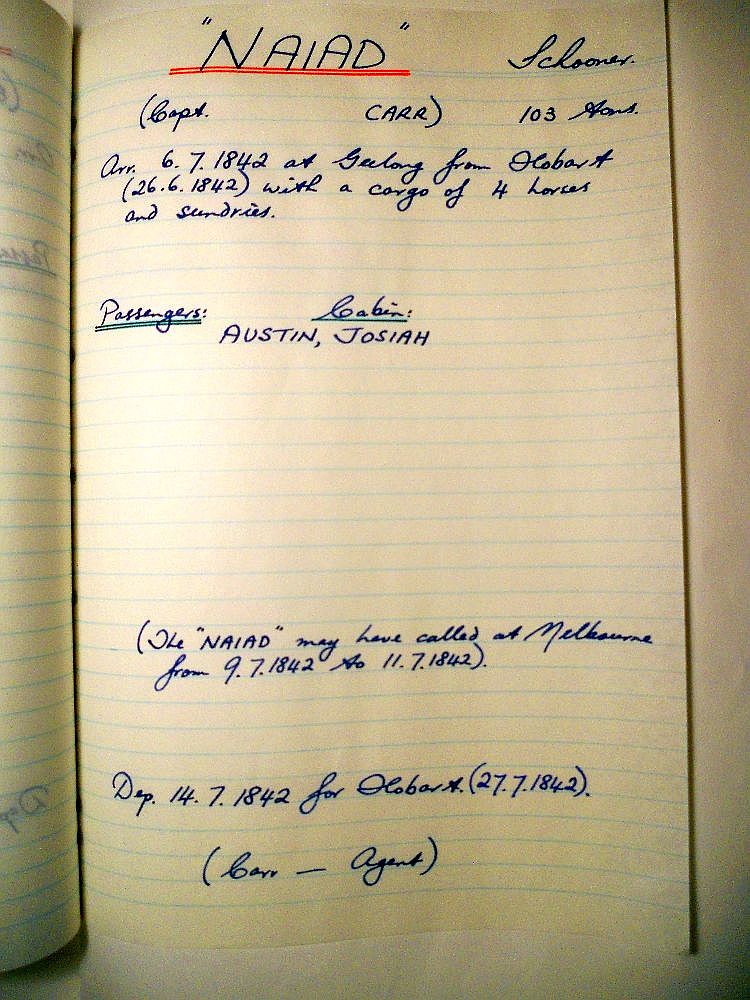 "NAIAD" Schooner.
(Capt. CARR) 103 tons.
Arr. 6.7.1842 at Geelong from Hobart
(26.6.1842) with a cargo of 4 horses
and sundries.
Passengers: Cabin:
AUSTIN, JOSIAH
(The "NAIAD" may have called at Melbourne
from 9.7.1842 to 11.7.1842).
Dep. 14.7.1842 for Hobart. (27.7.1842).
(Carr — Agent)